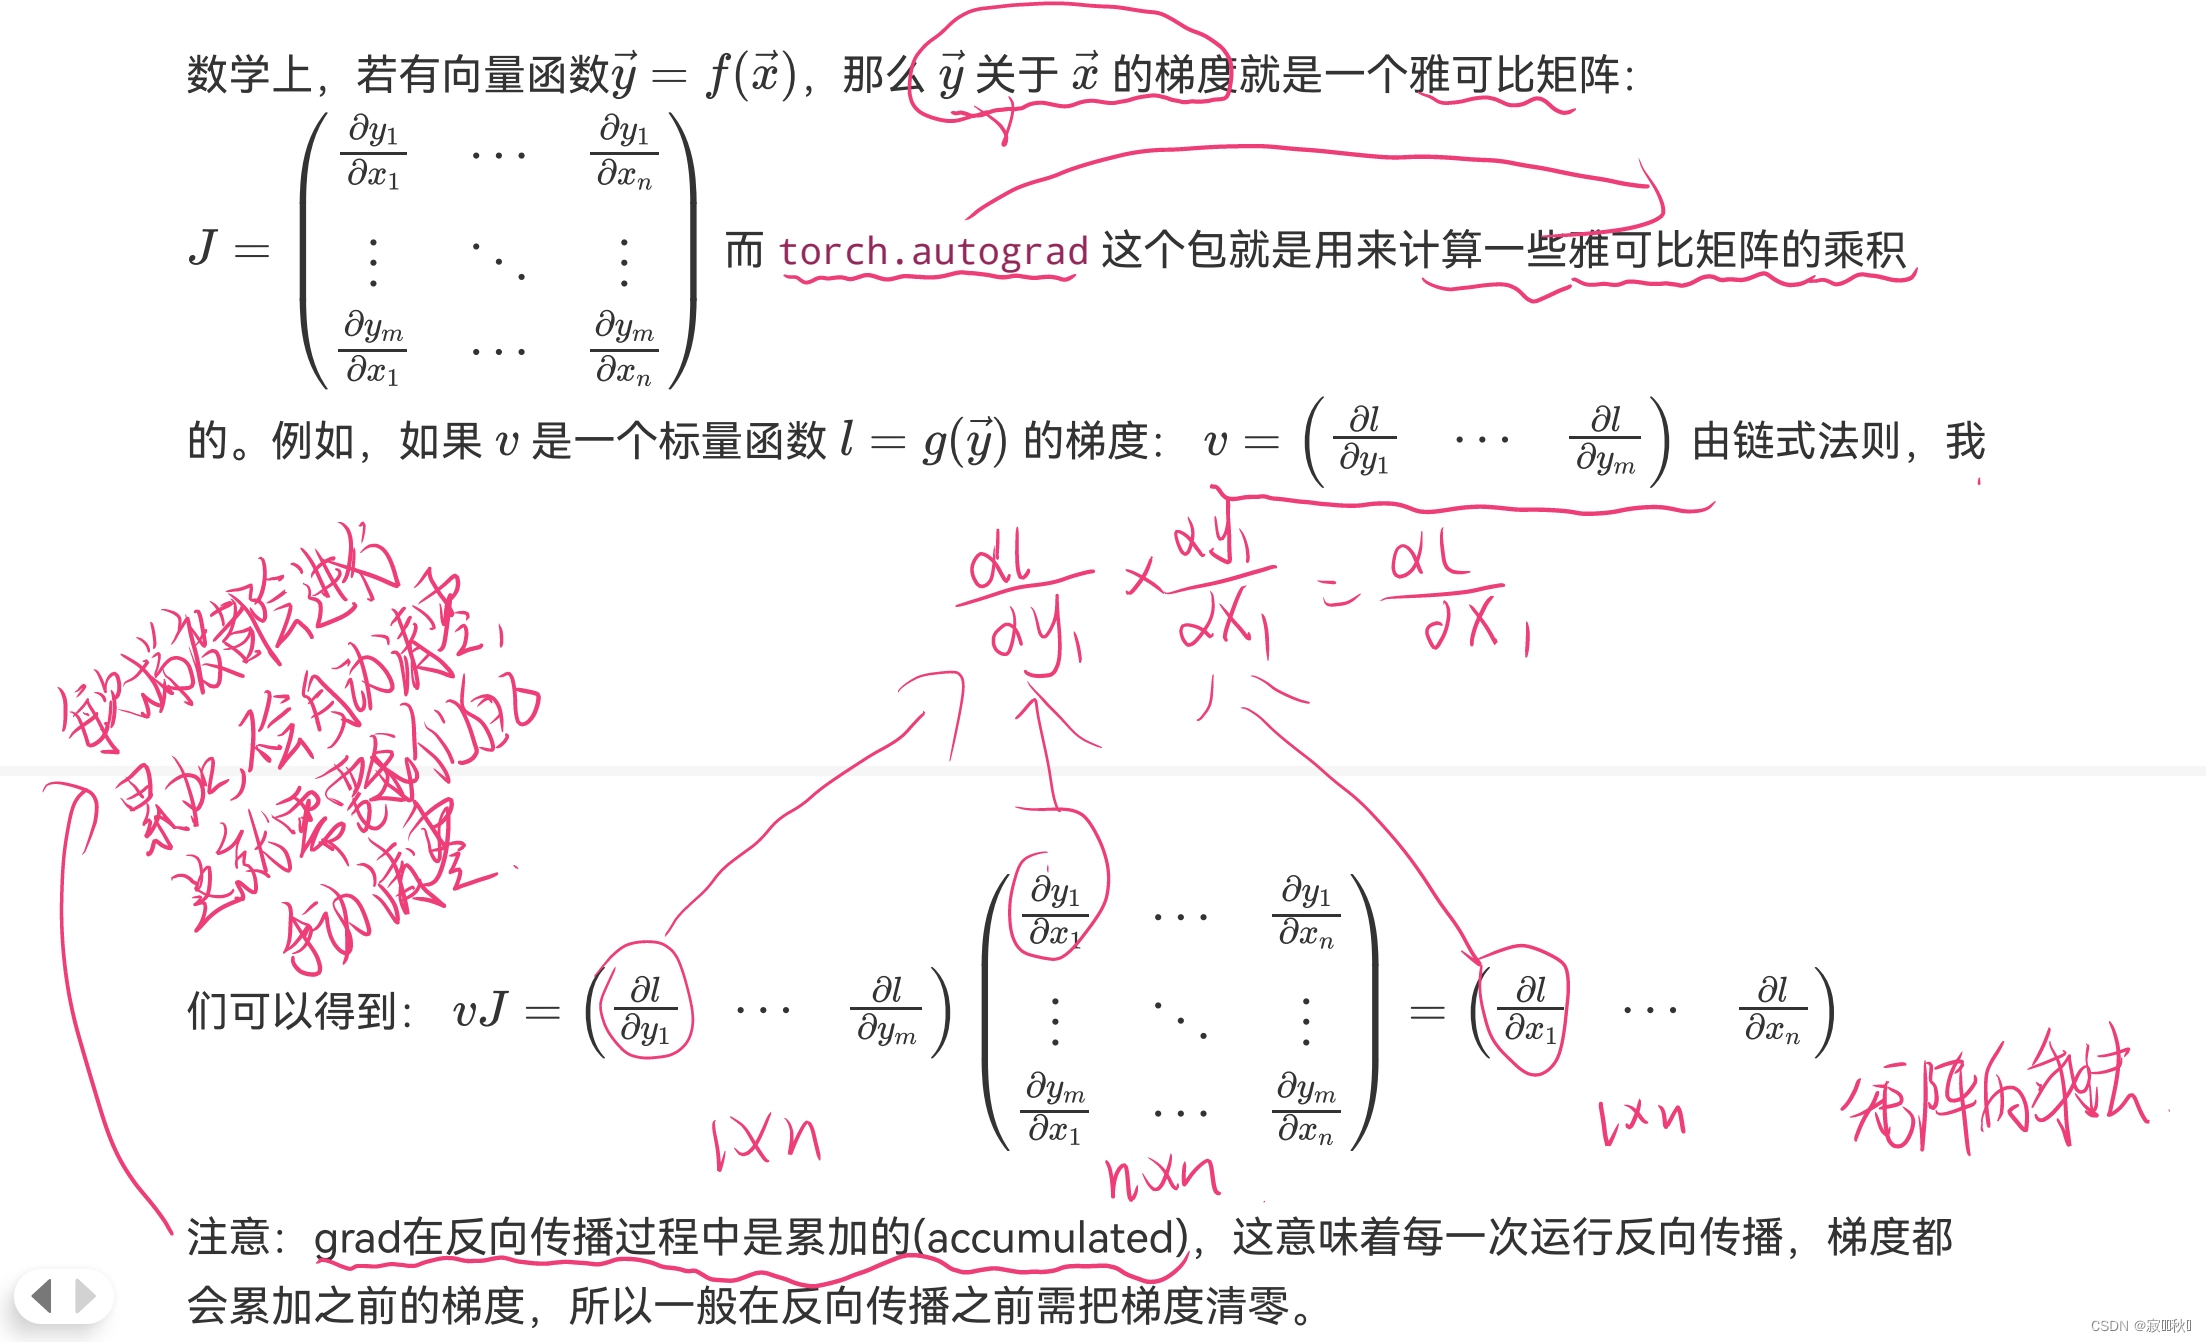 数学上，若有向量函数$\vec{y}=f(\vec{x})$，那么 $\vec{y}$ 关于 $\vec{x}$ 的梯度就是一个雅可比矩阵：
$J=\begin{pmatrix}\frac{\partial y_1}{\partial x_1} & \cdots & \frac{\partial y_1}{\partial x_n}\\ \vdots & \ddots & \vdots\\ \frac{\partial y_m}{\partial x_1} & \cdots & \frac{\partial y_m}{\partial x_n}\end{pmatrix}$ 而 torch.autograd 这个包就是用来计算一些雅可比矩阵的乘积
的。例如，如果 $v$ 是一个标量函数 $l=g(\vec{y})$ 的梯度： $v=\begin{pmatrix}\frac{\partial l}{\partial y_1} & \cdots & \frac{\partial l}{\partial y_m}\end{pmatrix}$ 由链式法则，我
$\frac{\partial l}{\partial y_1}\times\frac{\partial y_1}{\partial x_1}=\frac{\partial l}{\partial x_1}$
每次梯度都会进行
累加，不会自动清零，
这就需要我们自己
手动清零.
们可以得到： $vJ=\begin{pmatrix}\frac{\partial l}{\partial y_1} & \cdots & \frac{\partial l}{\partial y_m}\end{pmatrix}\begin{pmatrix}\frac{\partial y_1}{\partial x_1} & \cdots & \frac{\partial y_1}{\partial x_n}\\ \vdots & \ddots & \vdots\\ \frac{\partial y_m}{\partial x_1} & \cdots & \frac{\partial y_m}{\partial x_n}\end{pmatrix}=\begin{pmatrix}\frac{\partial l}{\partial x_1} & \cdots & \frac{\partial l}{\partial x_n}\end{pmatrix}$
1×n
n×n
1×n
矩阵的乘法
注意：grad在反向传播过程中是累加的(accumulated)，这意味着每一次运行反向传播，梯度都
会累加之前的梯度，所以一般在反向传播之前需把梯度清零。
CSDN @寂 秋